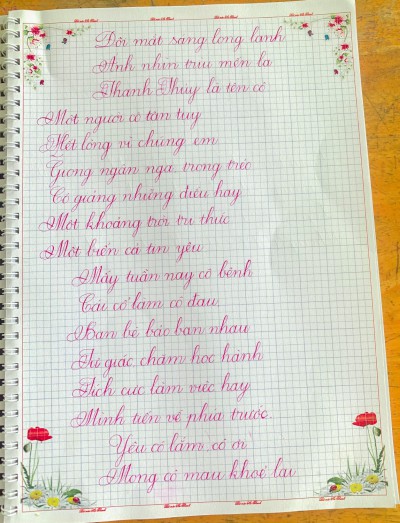 Đôi mắt sáng long lanh
Ánh nhìn trìu mến lạ
Thanh Thuỷ là tên cô
Một người cô tận tuỵ
Hết lòng vì chúng em
Giọng ngân nga, trong trẻo
Cô giảng những điều hay
Một khoảng trời tri thức
Một biển cả tin yêu
Mấy tuần nay cô bệnh
Cái cổ làm cô đau
Bạn bè bảo ban nhau
Tự giác, chăm học hành
Tích cực làm việc hay
Mình tiến về phía trước.
Yêu cô lắm, cô ơi
Mong cô mau khoẻ lại